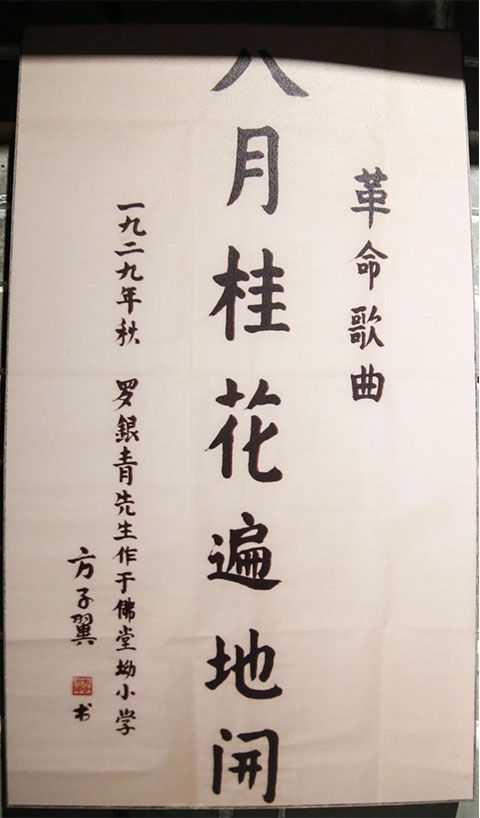 革命歌曲
八月桂花遍地开
一九二九年秋 罗银青先生作于佛堂坳小学
方子翼 书